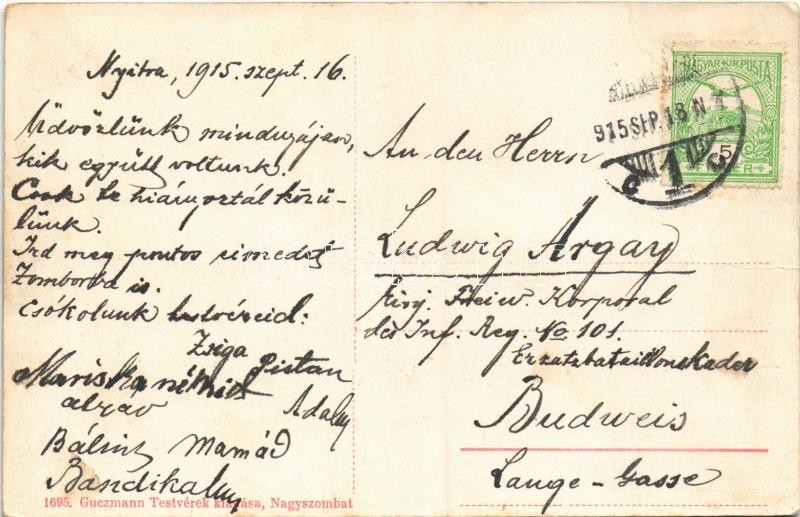 Nyitra, 1915. szept. 16.
Üdvözlünk mindnyájan,
kik együtt voltunk.
Csak te hiányoztál közü-
lünk.
Ird meg pontos cimedet
Zomborba is.
Csókolunk testvéreid:
Zsiga Pistan
Mariska
Bálint Mamád
1695. Guczmann Testvérek kiadása, Nagyszombat
MAGYAR KIR. POSTA
5
915 SEP. 18 N
1
An den Herrn
Ludwig Argay
Einj. Freiw. Korporal
des Inf. Reg. No 101.
Erzatzbataillonskader
Budweis
Lange-Gasse